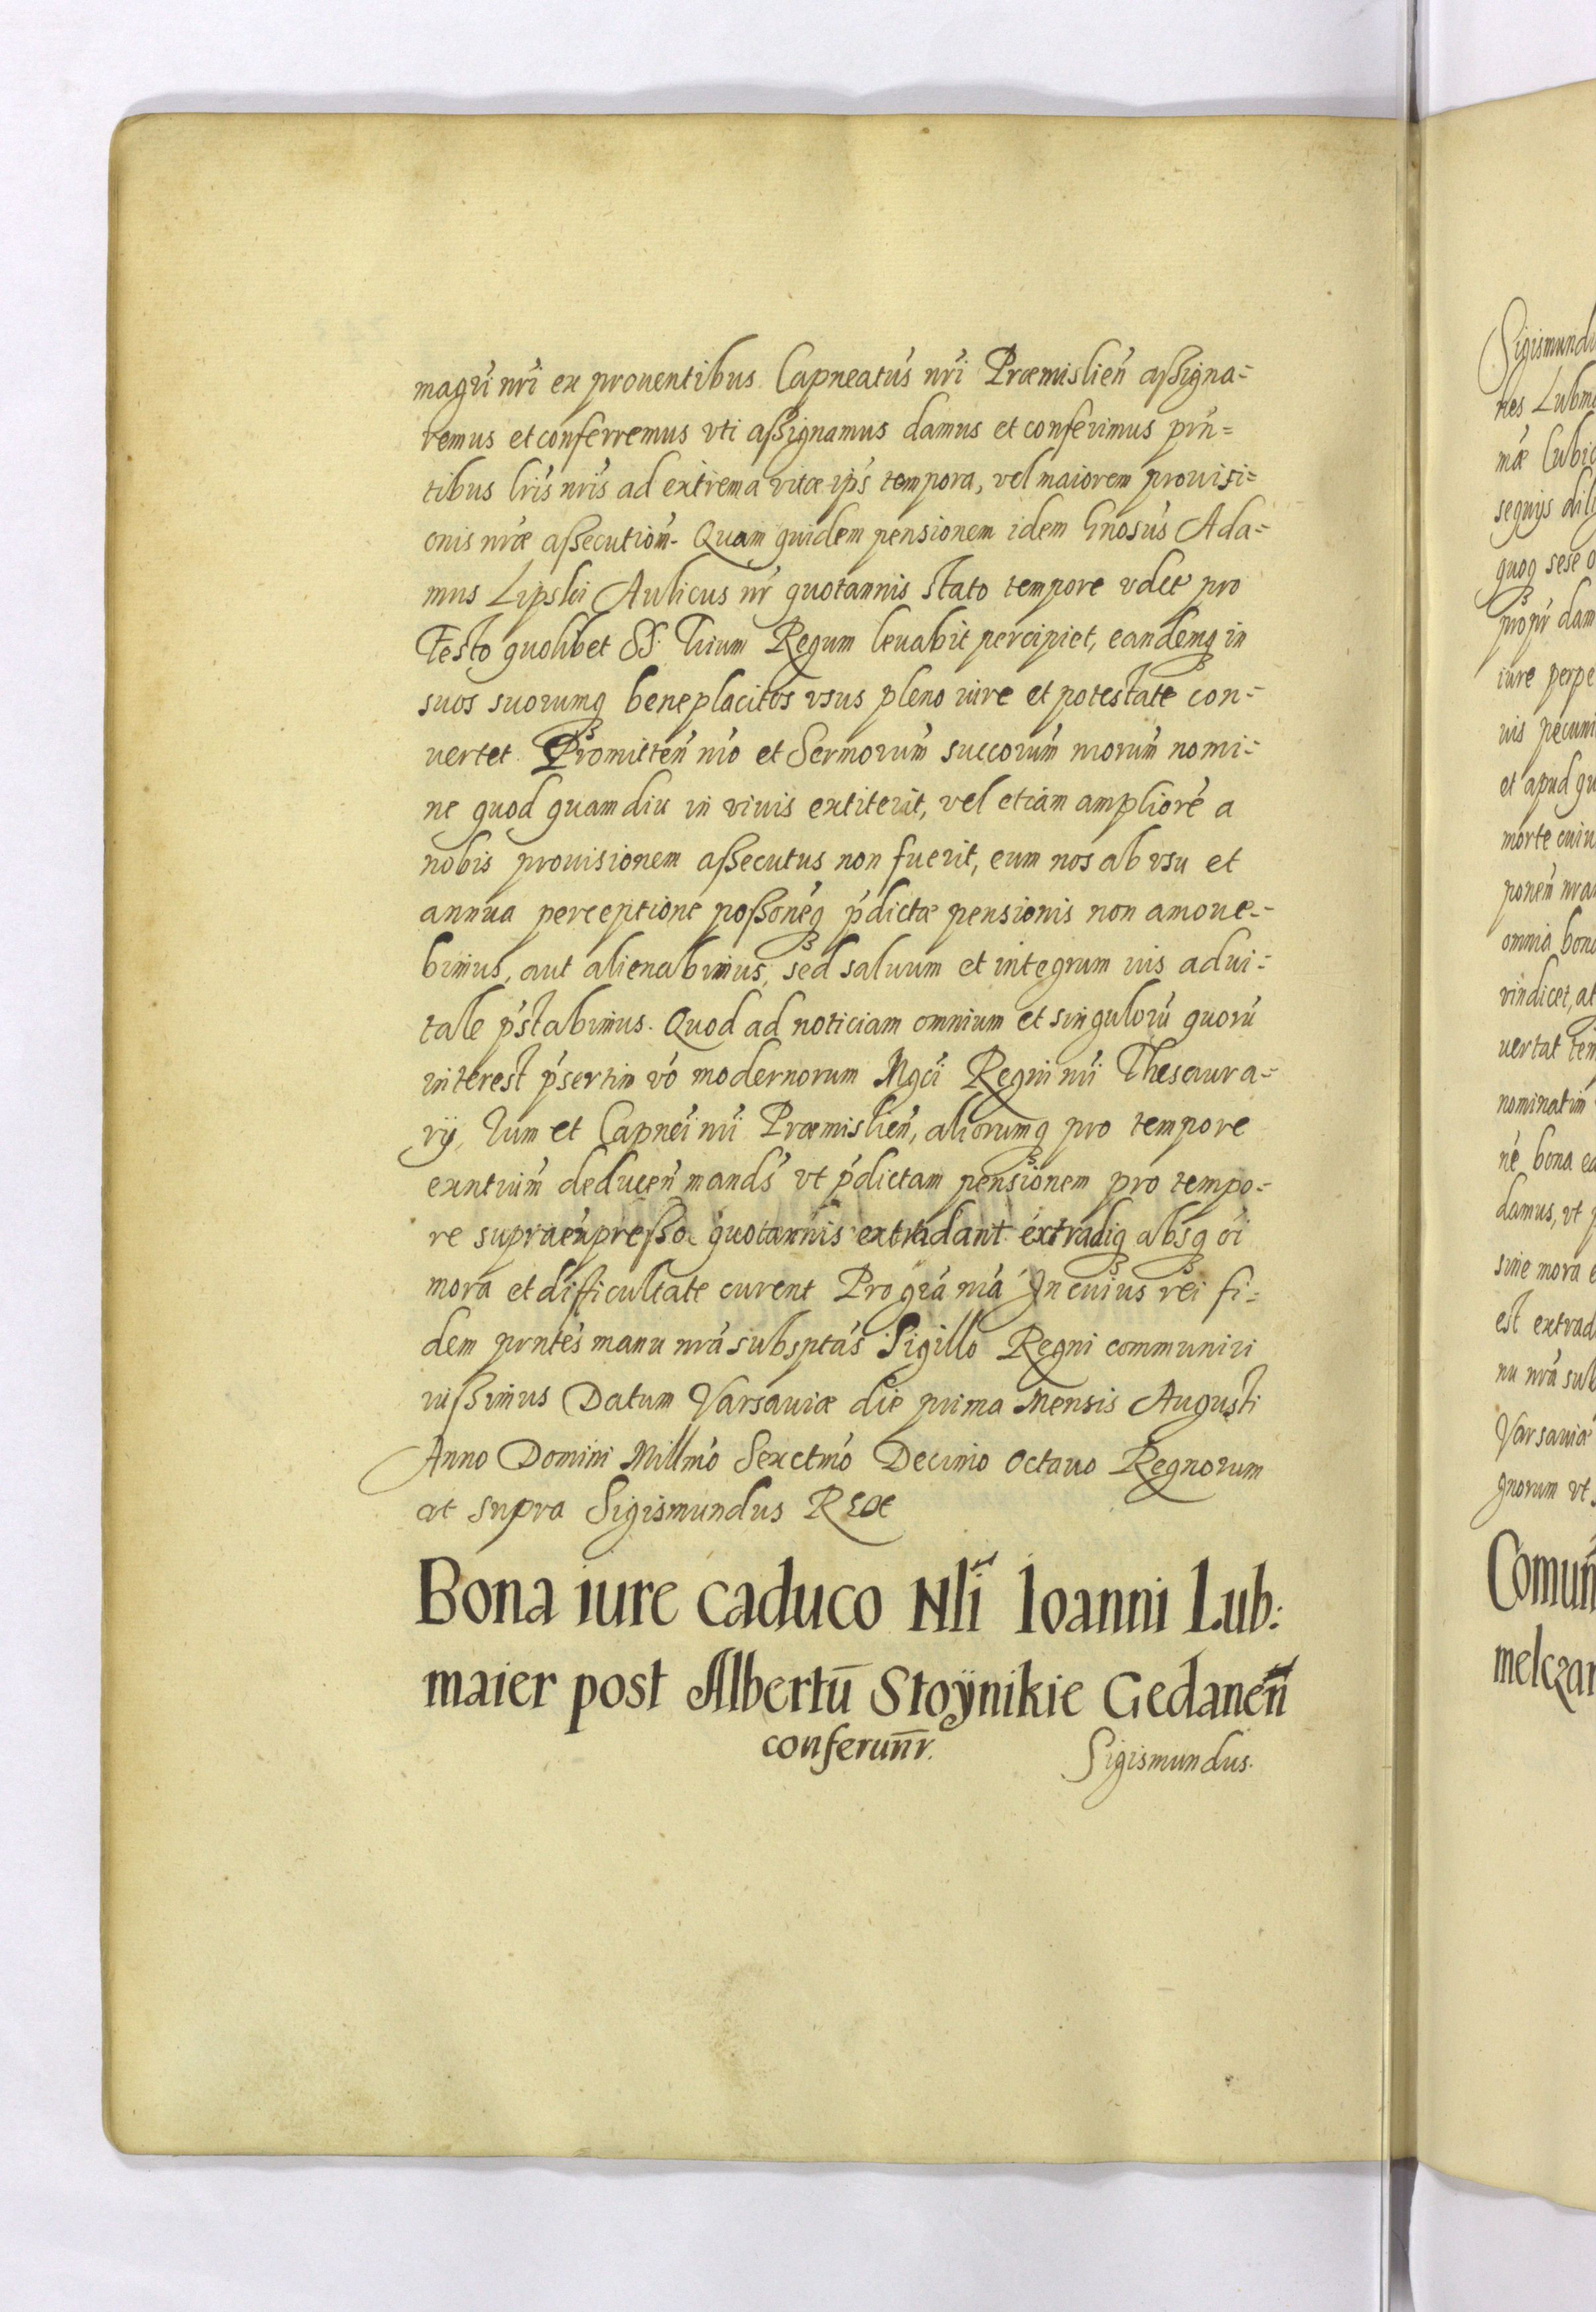 magr̃i nr̃i ex prouentibus Capneatus nr̃i Præmislien̄ aſsigna=
remus et conferremus vti aſsignamus damus et conferimus prn̄=
tibus lrīs nrīs ad extrema vitæ ip̄s tempora, vel maiorem prouisi=
onis nr̃æ aſsecution̄. Quam quidem pensionem idem Gnosus Ada=
mus Lipski Aulicus nr̄ quotannis stato tempore vdet pro
Festo quolibet SS. Trium Regum leuabit percipiet, eandemq in
suos suorumq beneplacitos vsus pleno iure et potestate con=
uertet. Promitten̄ nr̄o et Sermorum̄ succorum̄ nrorum̄ nomi=
ne quod quamdiu in viuis extiterit, vel etiam ampliorē a
nobis prouisionem aſsecutus non fuerit, eum nos ab vsu et
annua perceptione poſsonēq p̄dictæ pensionis non amoue=
bimus, aut alienabimus, sed saluum et integrum ius adui=
tale p̄stabimus. Quod ad noticiam omnium et singulorū quorū
interest p̄sertim vō modernorum Mgci Regni nr̄i Thesaura=
rij, Tum et Capnei nr̄i Præmislien̄, aliorumq pro tempore
exntium̄ deducen̄ mand̄s vt p̄dictam pensionem pro tempo=
re supraexpreſso quotannis extradant extradiq absq oī
mora et difficultate curent Pro grā nrā In cuius rei fi=
dem prntes manu nrā subsptas Sigillo Regni communiri
iuſsimus Datum Varsauiæ die prima Mensis Augusti
Anno Domini Millmō Sexctmō Decimo Octauo Regnorum
ut supra Sigismundus Rex
Bona iure caduco Nli Ioanni Lub:
maier post Albertū Stoÿnikie Gedanen̄
conferun̄r.
Sigismundus.
Sigismundu
nes Lubm
mæ Cubic
sequijs dil
quoq sese o
propr dam
iure perpe
uis pecuni
et apud qu
morte cuiu
ponen̄ nra
omnia bona
vindicet, at
uertat ten
nominatim
nē bona ea
damus, vt p
sine mora e
est extrad
nu nrā sub
Varsauiæ
gnorum vt s
Comun̄
melczar